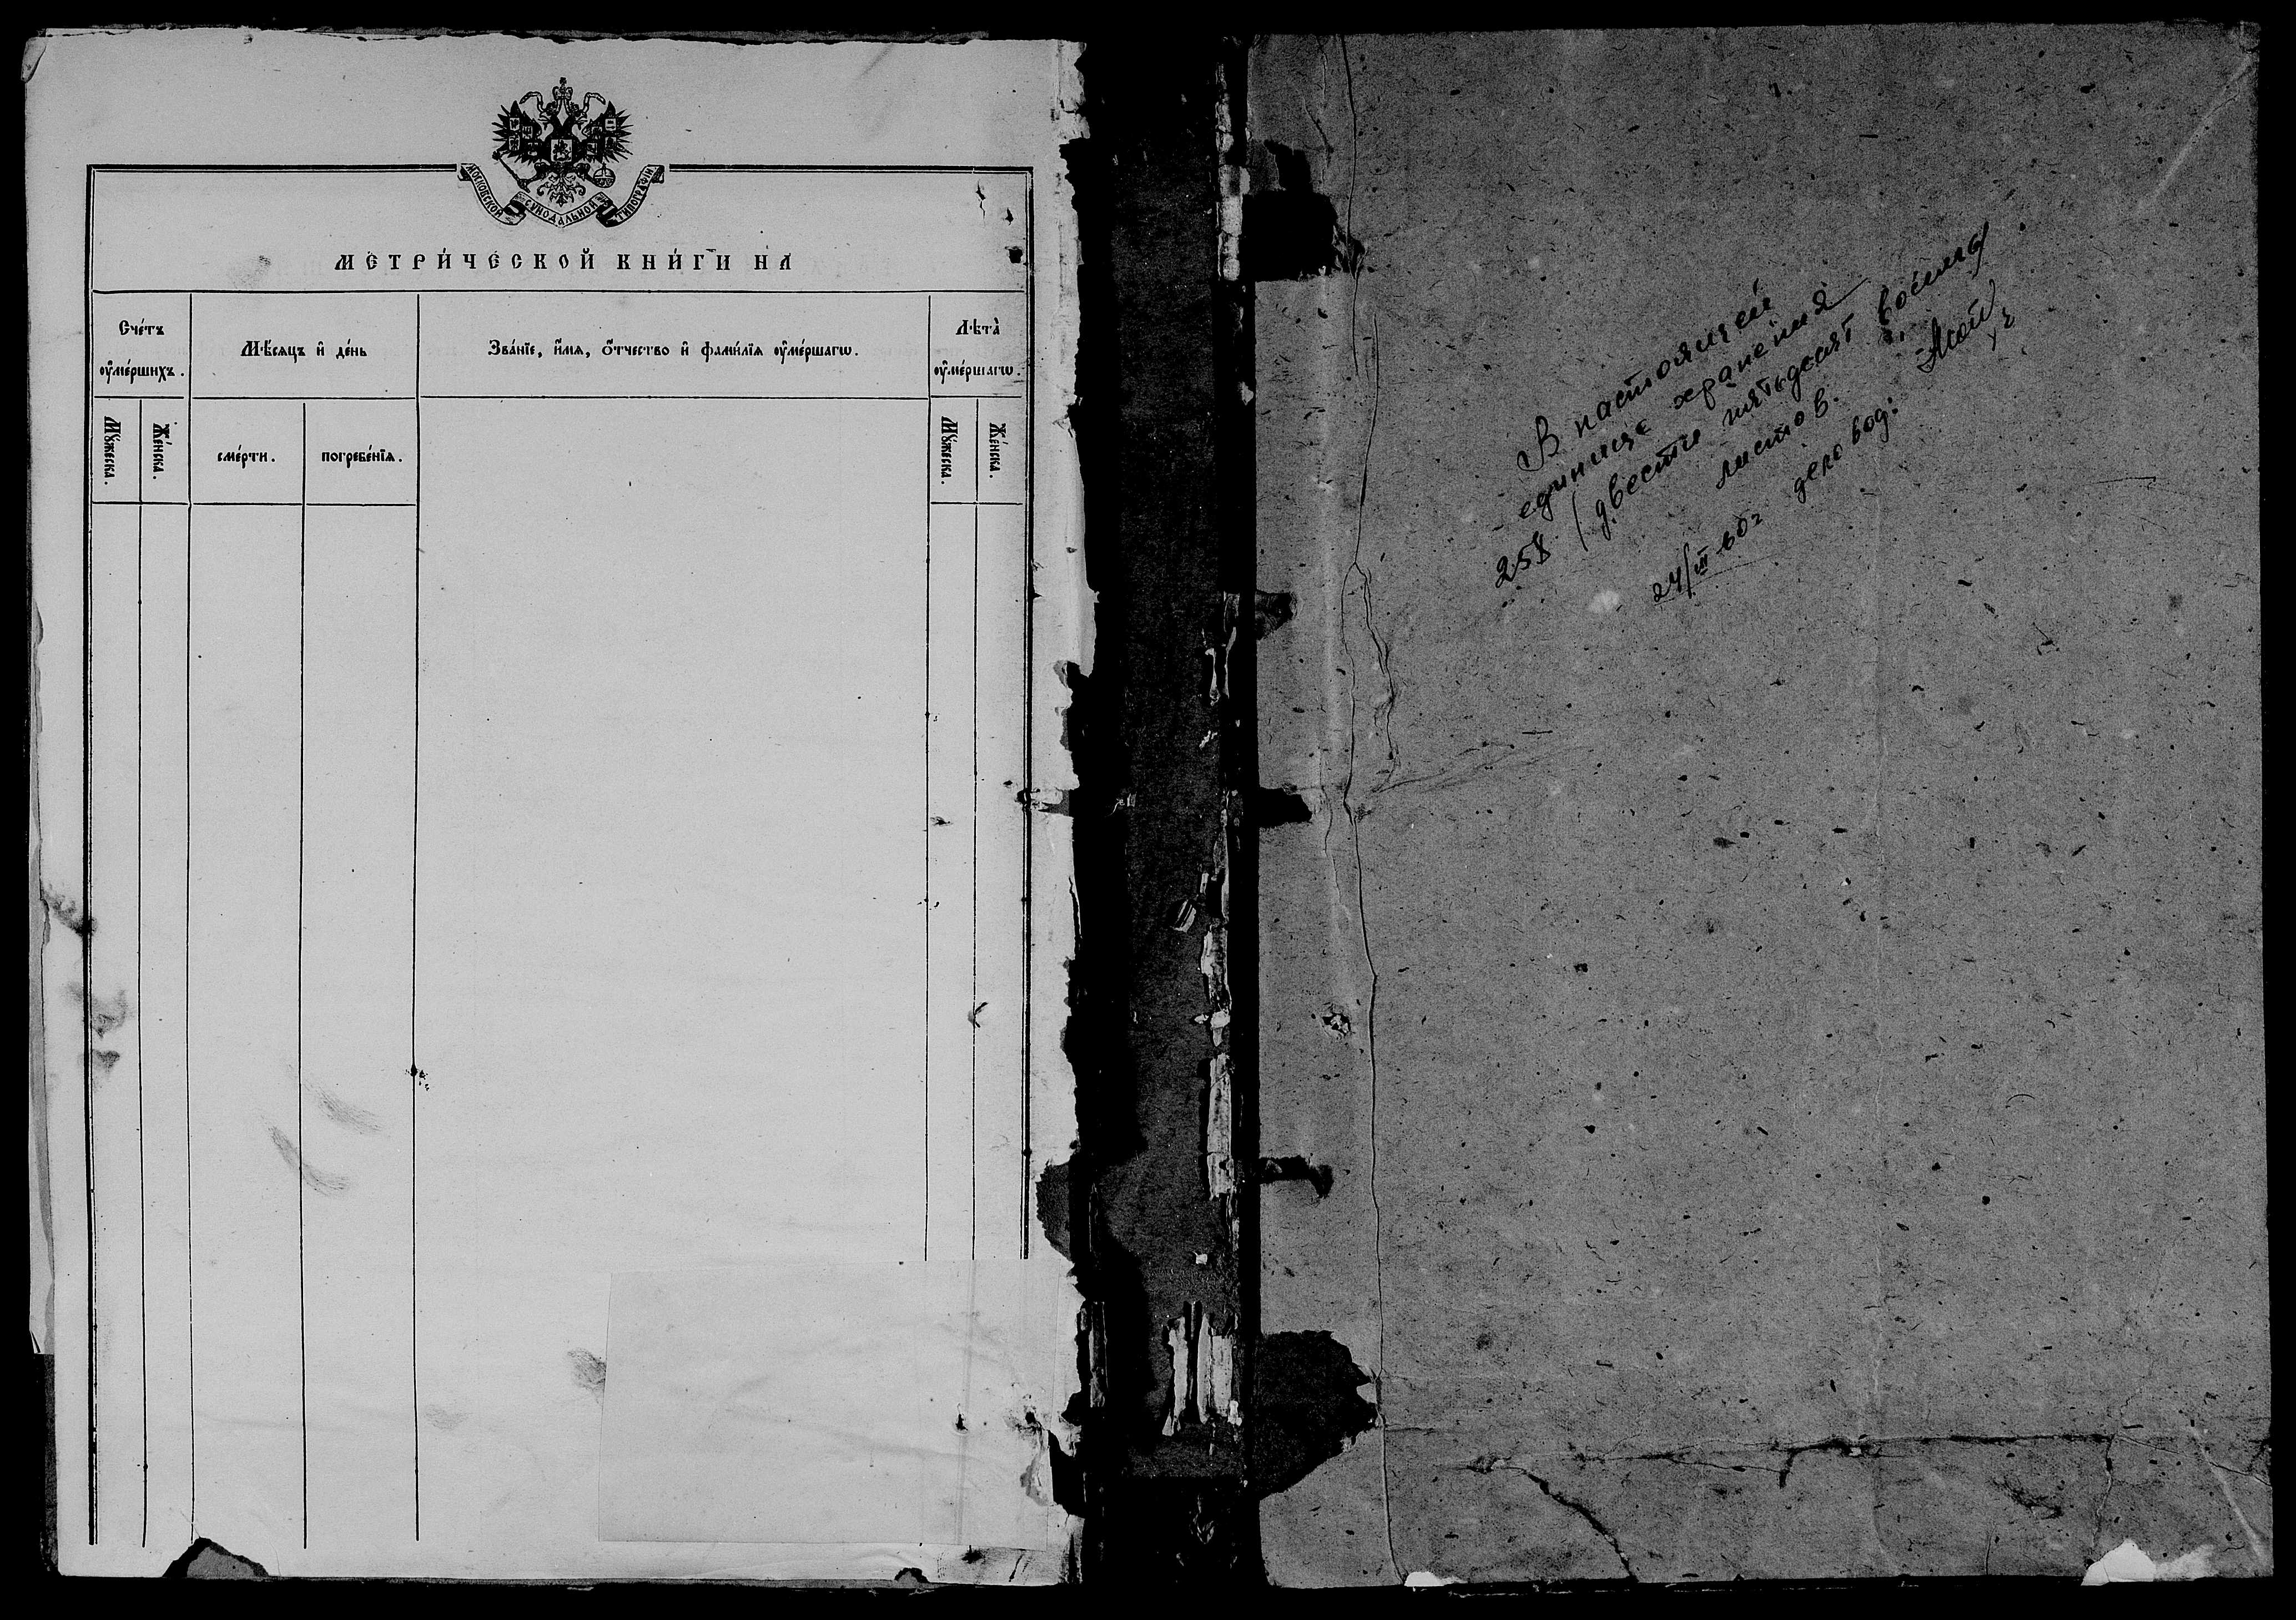 МОСКОВСКОЙ СѴНОДАЛЬНОЙ ТИПОГРАФІИ
МЕТРИ́ЧЕСКОЙ КНИ́ГИ НА
Сче́тъ
оу҆ме́ршихъ.
Мѣ́сяцъ и҆ де́нь
Зва́нїе, и҆́мя, ѻ҆́тчество и҆ фами́лїя оу҆ме́ршагѡ.
Лѣ́та
оу҆ме́ршагѡ.
Мꙋ́жеска.
Же́нска.
сме́рти.
погребе́нїя.
Мꙋ́жеска.
Же́нска.
В настоящей
единице хранения
258 (двести пятьдесят восемь)
листов.
24/III 60г деловод: